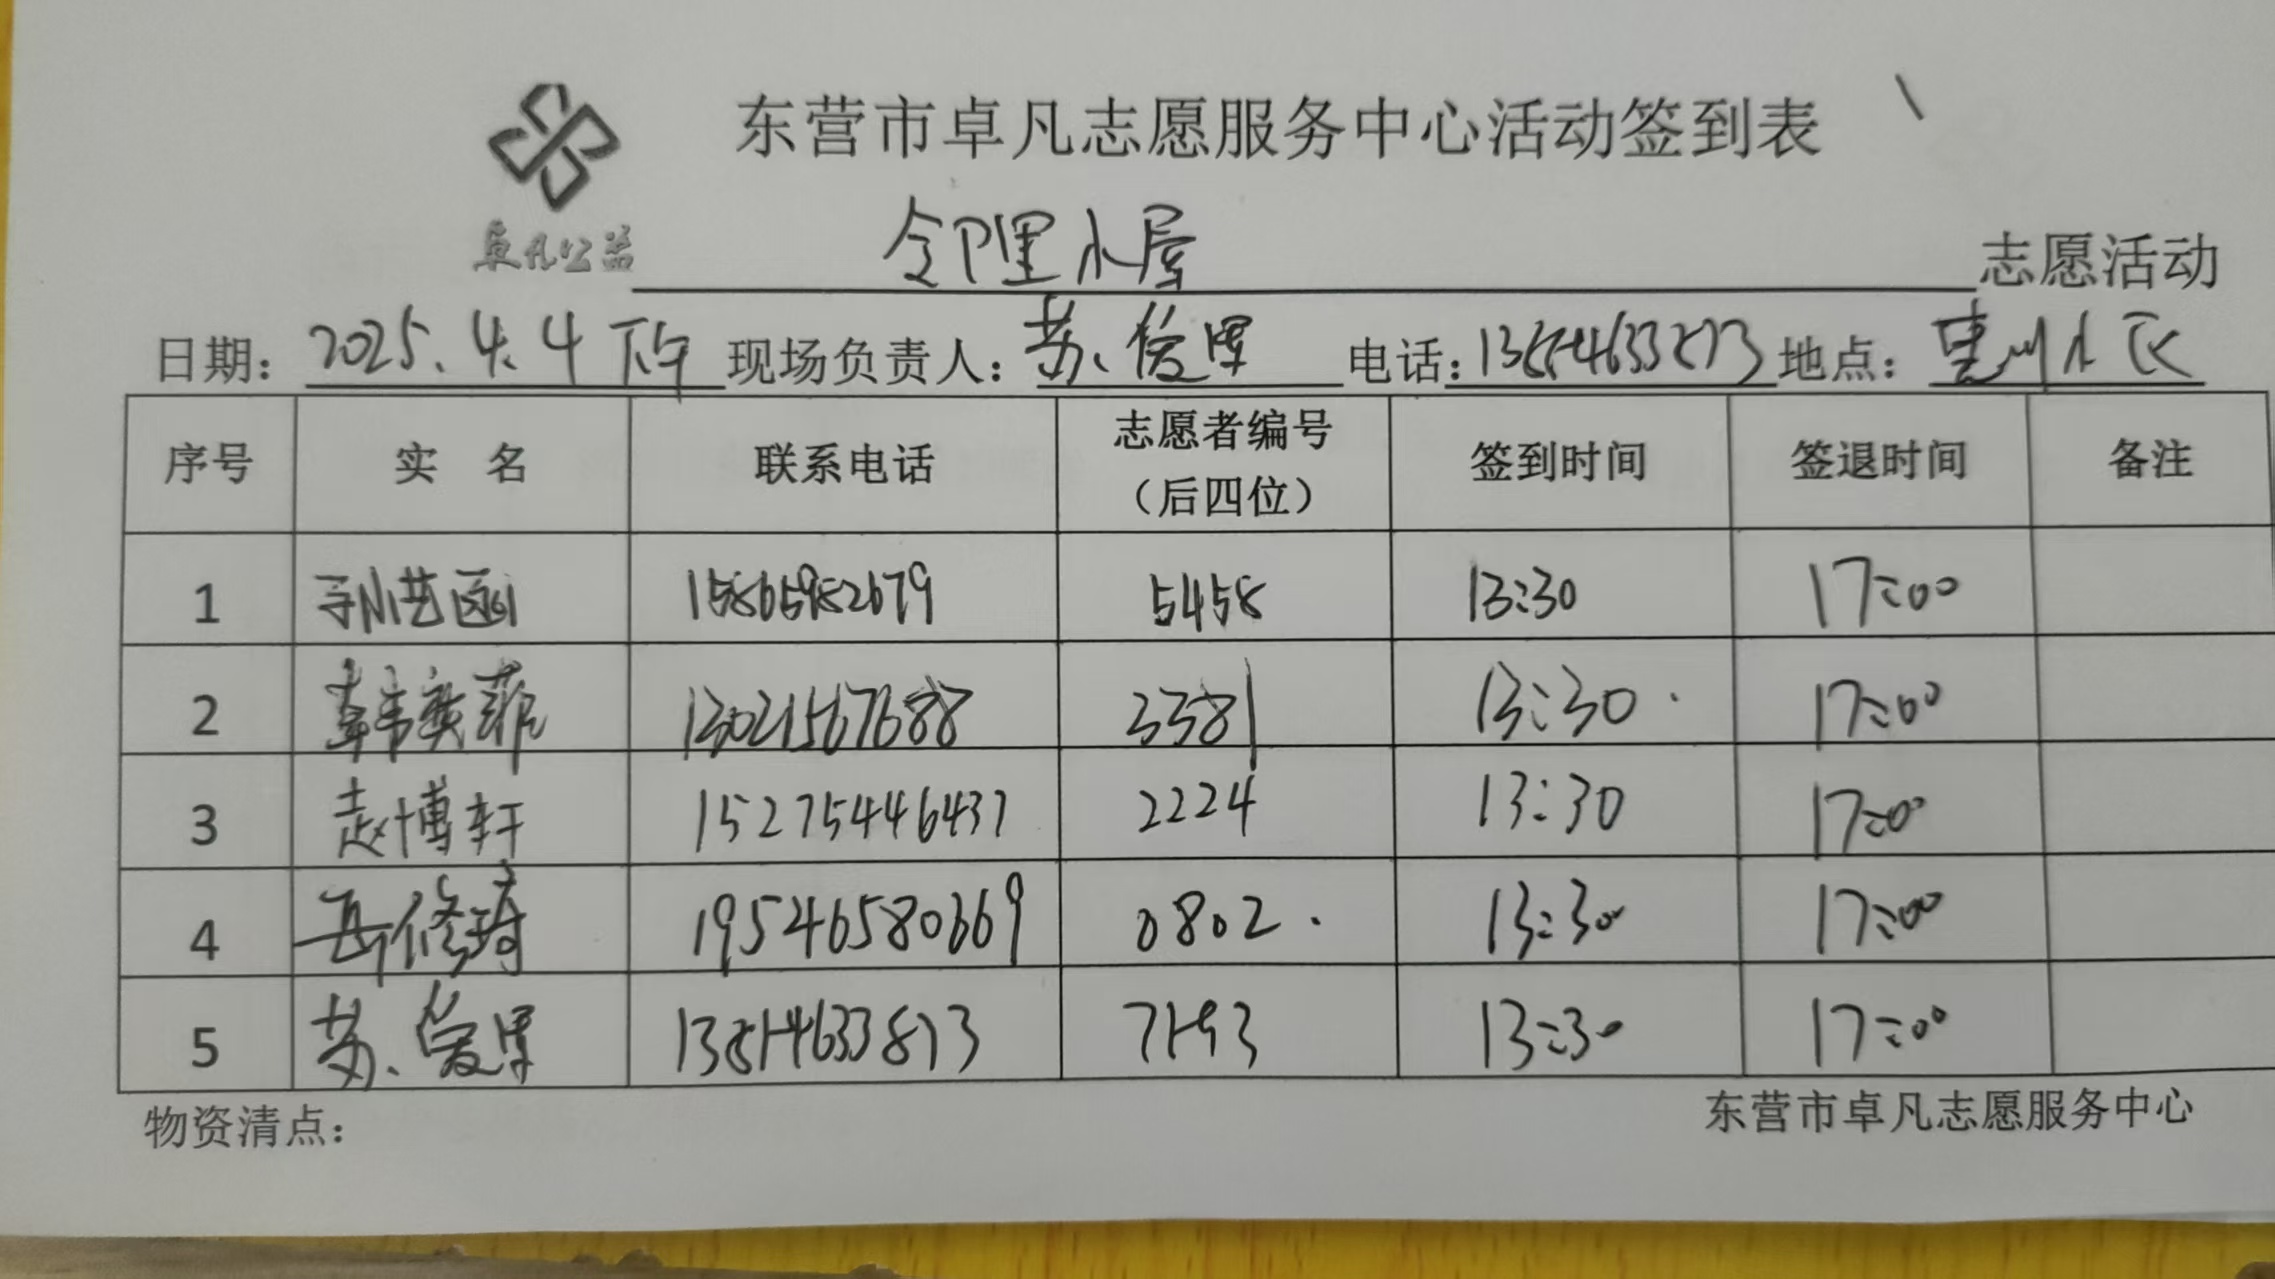 东营市卓凡志愿服务中心活动签到表
卓凡公益
邻里小屋 志愿活动
日期：2025.4.4下午 现场负责人：苏 电话： 地点：惠州小区
序号 实 名 联系电话 志愿者编号（后四位） 签到时间 签退时间 备注
1 孙艺函 15865982679 5458 13:30 17:00
2 韩奕菲 13021567688 3381 13:30 17:00
3 赵博轩 15275446437 2224 13:30 17:00
4 岳修琦 19546580669 0802 13:30 17:00
5 苏 7193 13:30 17:00
物资清点：
东营市卓凡志愿服务中心